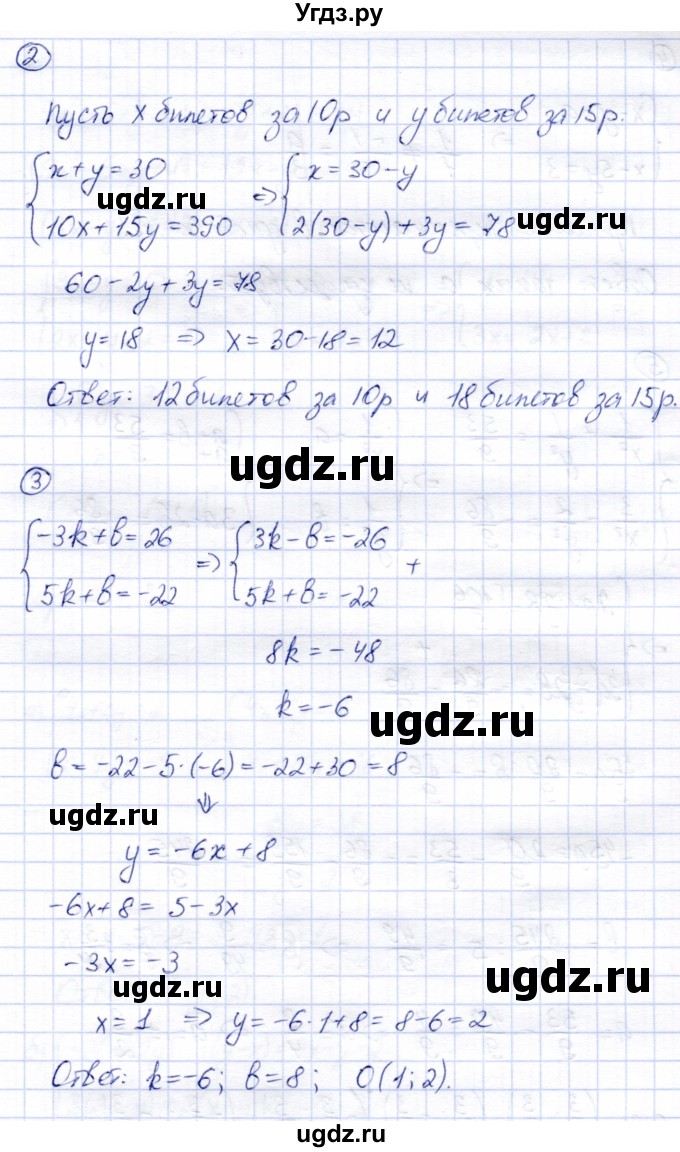 Угдз.ру
2
Пусть x билетов за 10р и y билетов за 15р.
{x+y=30 ⇒ {x=30-y
ugdz.ru ugdz.ru
10x+15y=390 2(30-y)+3y=78
60-2y+3y=78
y=18 ⇒ x=30-18=12
Ответ: 12 билетов за 10р и 18 билетов за 15р.
ugdz.ru
3
{-3k+b=26 ⇒ {3k-b=-26 +
5k+b=-22 5k+b=-22
8k=-48
k=-6
ugdz.ru
b=-22-5·(-6)=-22+30=8
⇓
ugdz.ru
y=-6x+8
-6x+8=5-3x
-3x=-3
ugdz.ru
ugdz.ru
x=1 ⇒ y=-6·1+8=8-6=2
Ответ: k=-6; b=8; О(1;2).
ugdz.ru